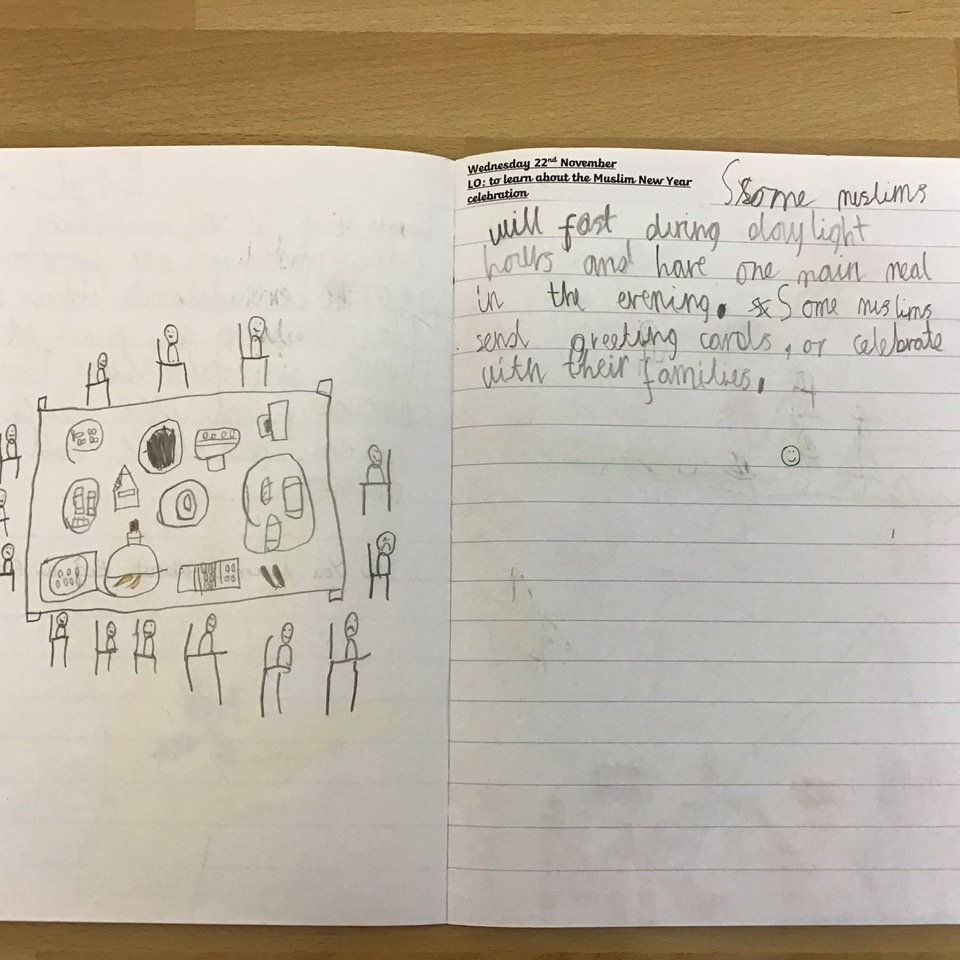 Wednesday 22nd November
LO: to learn about the Muslim New Year
celebration
Some muslims
will fast during daylight
hours and have one main meal
in the evening. Some muslims
send greeting cards, or celebrate
with their families.